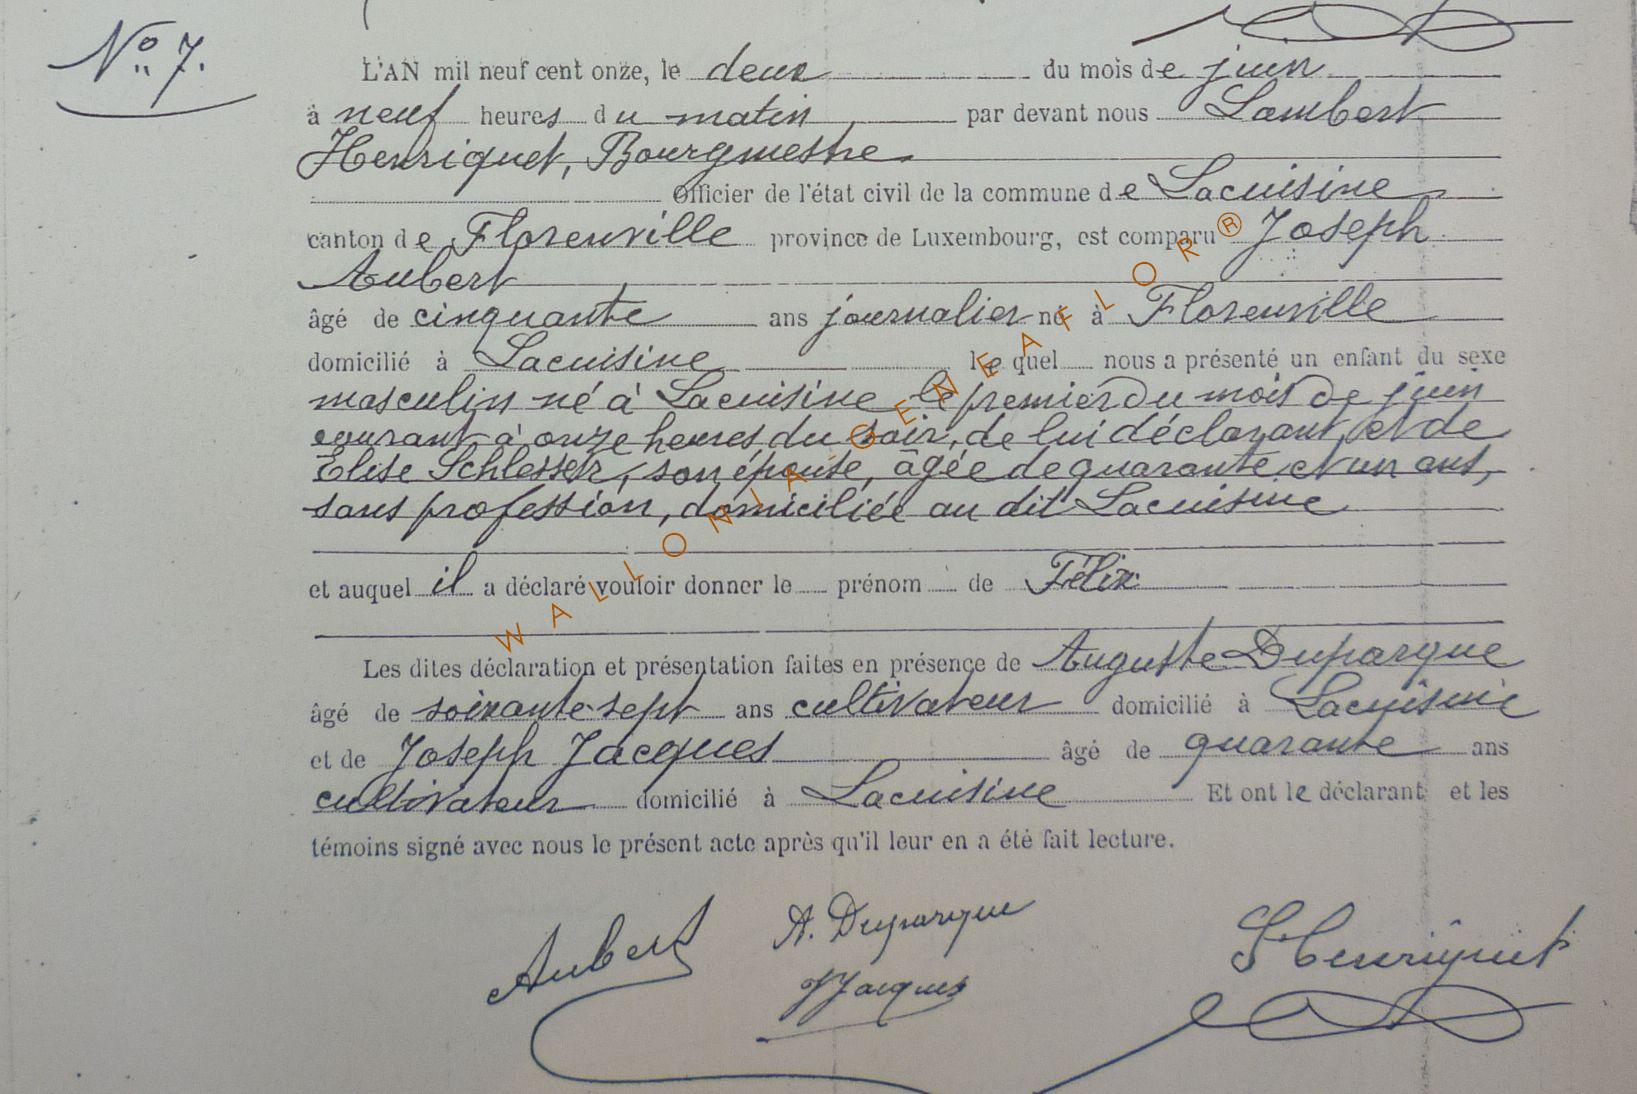 No 7.
L'AN mil neuf cent onze, le deux du mois de juin
à neuf heures du matin par devant nous Lambert
Henriquet, Bourgmestre
Officier de l'état civil de la commune de Lacuisine
canton de Florenville province de Luxembourg, est comparu Joseph
Aubert
âgé de cinquante ans journalier né à Florenville
domicilié à Lacuisine lequel nous a présenté un enfant du sexe
masculin né à Lacuisine le premier du mois de juin
courant à onze heures du soir, de lui déclarant et de
Elise Schlesser, son épouse, âgée de quarante et un ans,
sans profession, domiciliée au dit Lacuisine
et auquel il a déclaré vouloir donner le prénom de Félix
Les dites déclaration et présentation faites en présence de Auguste Duparque
âgé de soixante sept ans cultivateur domicilié à Lacuisine
et de Joseph Jacques âgé de quarante ans
cultivateur domicilié à Lacuisine Et ont le déclarant et les
témoins signé avec nous le présent acte après qu'il leur en a été fait lecture.
Aubert A. Duparque Henriquet
J Jacques
WALLONIA GENEAFLOR®